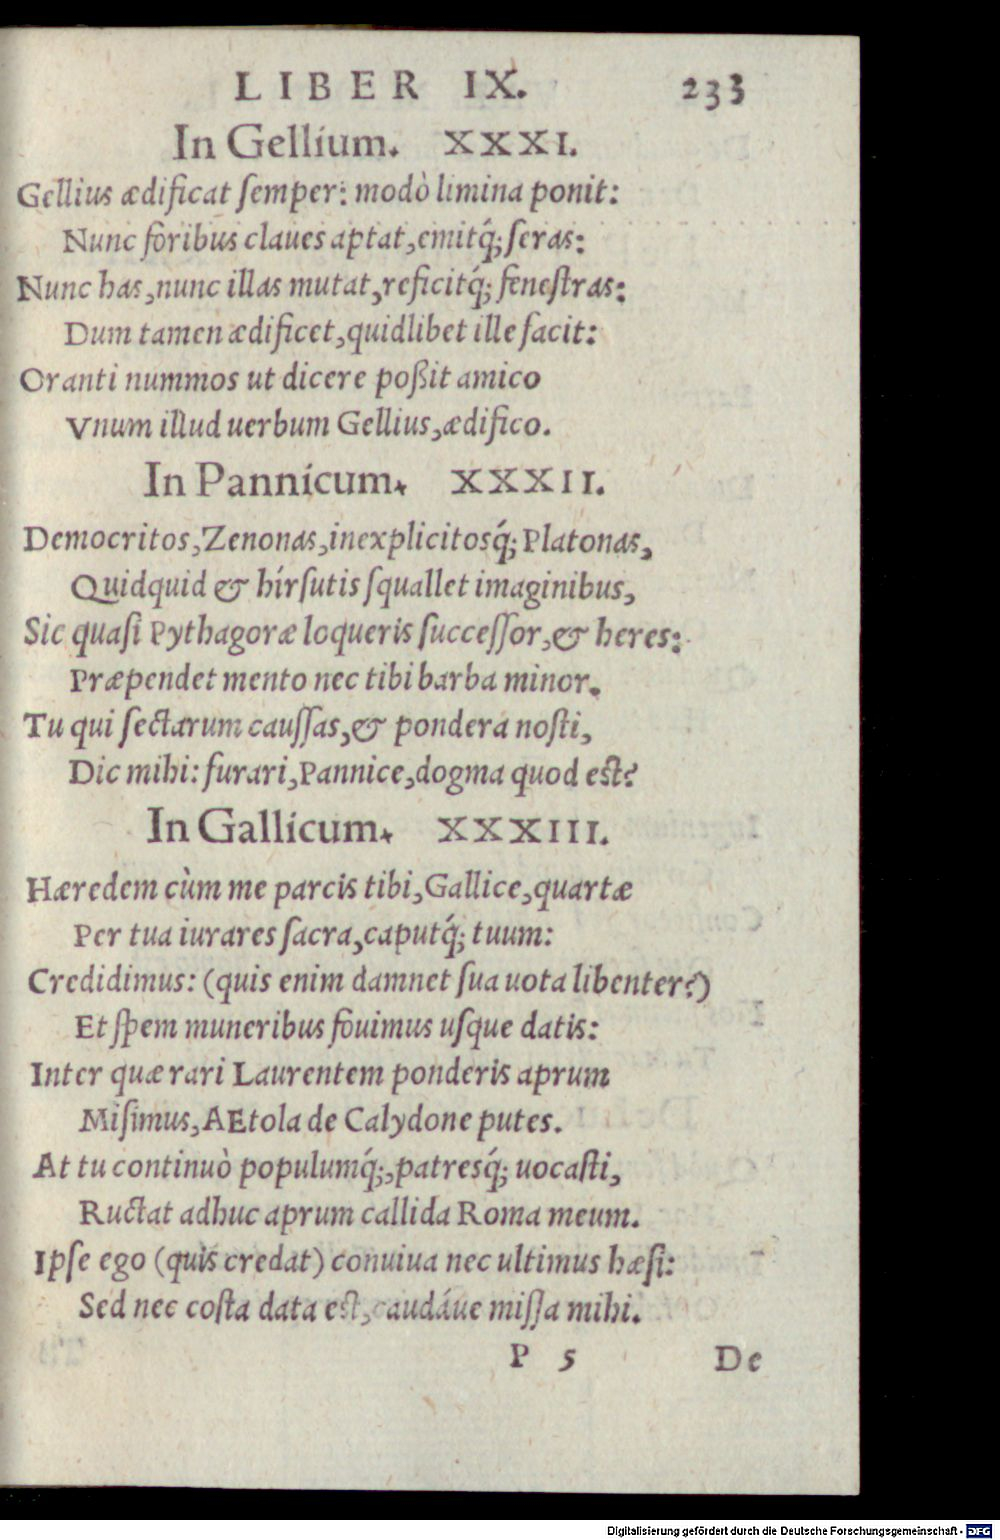 LIBER IX. 233
In Gellium. XXXI.
Gellius ædificat ſemper: modò limina ponit:
Nunc foribus claues aptat, emitq́; ſeras:
Nunc has, nunc illas mutat, reficitq́; feneſtras:
Dum tamen ædificet, quidlibet ille facit:
Oranti nummos ut dicere poßit amico
Vnum illud uerbum Gellius, ædifico.
In Pannicum. XXXII.
Democritos, Zenonas, inexplicitosq́; Platonas,
Quidquid & hírſutis ſquallet imaginibus,
Sic quaſi Pythagoræ loqueris ſucceſſor, & heres:
Præpendet mento nec tibi barba minor.
Tu qui ſectarum cauſſas, & pondera noſti,
Dic mihi: furari, Pannice, dogma quod eſt?
In Gallicum. XXXIII.
Hæredem cùm me parcis tibi, Gallice, quartæ
Per tua iurares ſacra, caputq́; tuum:
Credidimus: (quis enim damnet ſua uota libenter?)
Et ſpem muneribus fouimus uſque datis:
Inter quæ rari Laurentem ponderis aprum
Miſimus, AEtola de Calydone putes.
At tu continuò populumq́;, patresq́; uocaſti,
Ructat adhuc aprum callida Roma meum.
Ipſe ego (quis credat) conuiua nec ultimus hæſi:
Sed nec coſta data eſt, caudáue miſſa mihi.
P 5 De
Digitalisierung gefördert durch die Deutsche Forschungsgemeinschaft - DFG